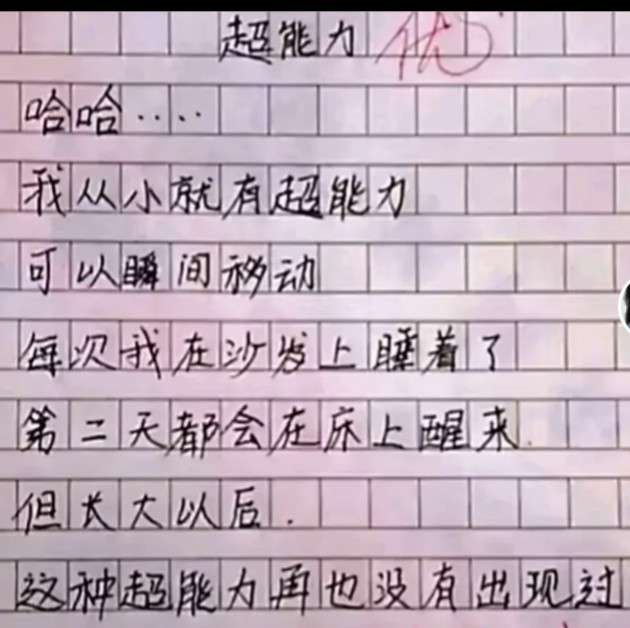 超能力 优
哈哈····
我从小就有超能力
可以瞬间移动
每次我在沙发上睡着了
第二天都会在床上醒来.
但长大以后.
这种超能力再也没有出现过